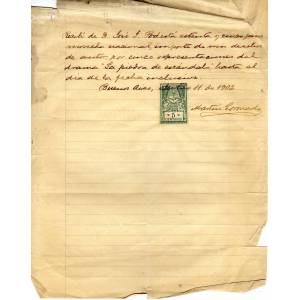 Recibí de D. José J. Podestá setenta y cinco pesos
moneda nacional importe de mis derechos
de autor por cinco representaciones del
drama "La piedra de escándalo" hasta el
día de la fecha inclusive.
Buenos Aires, 11 de 1902
Martín Coronado
5